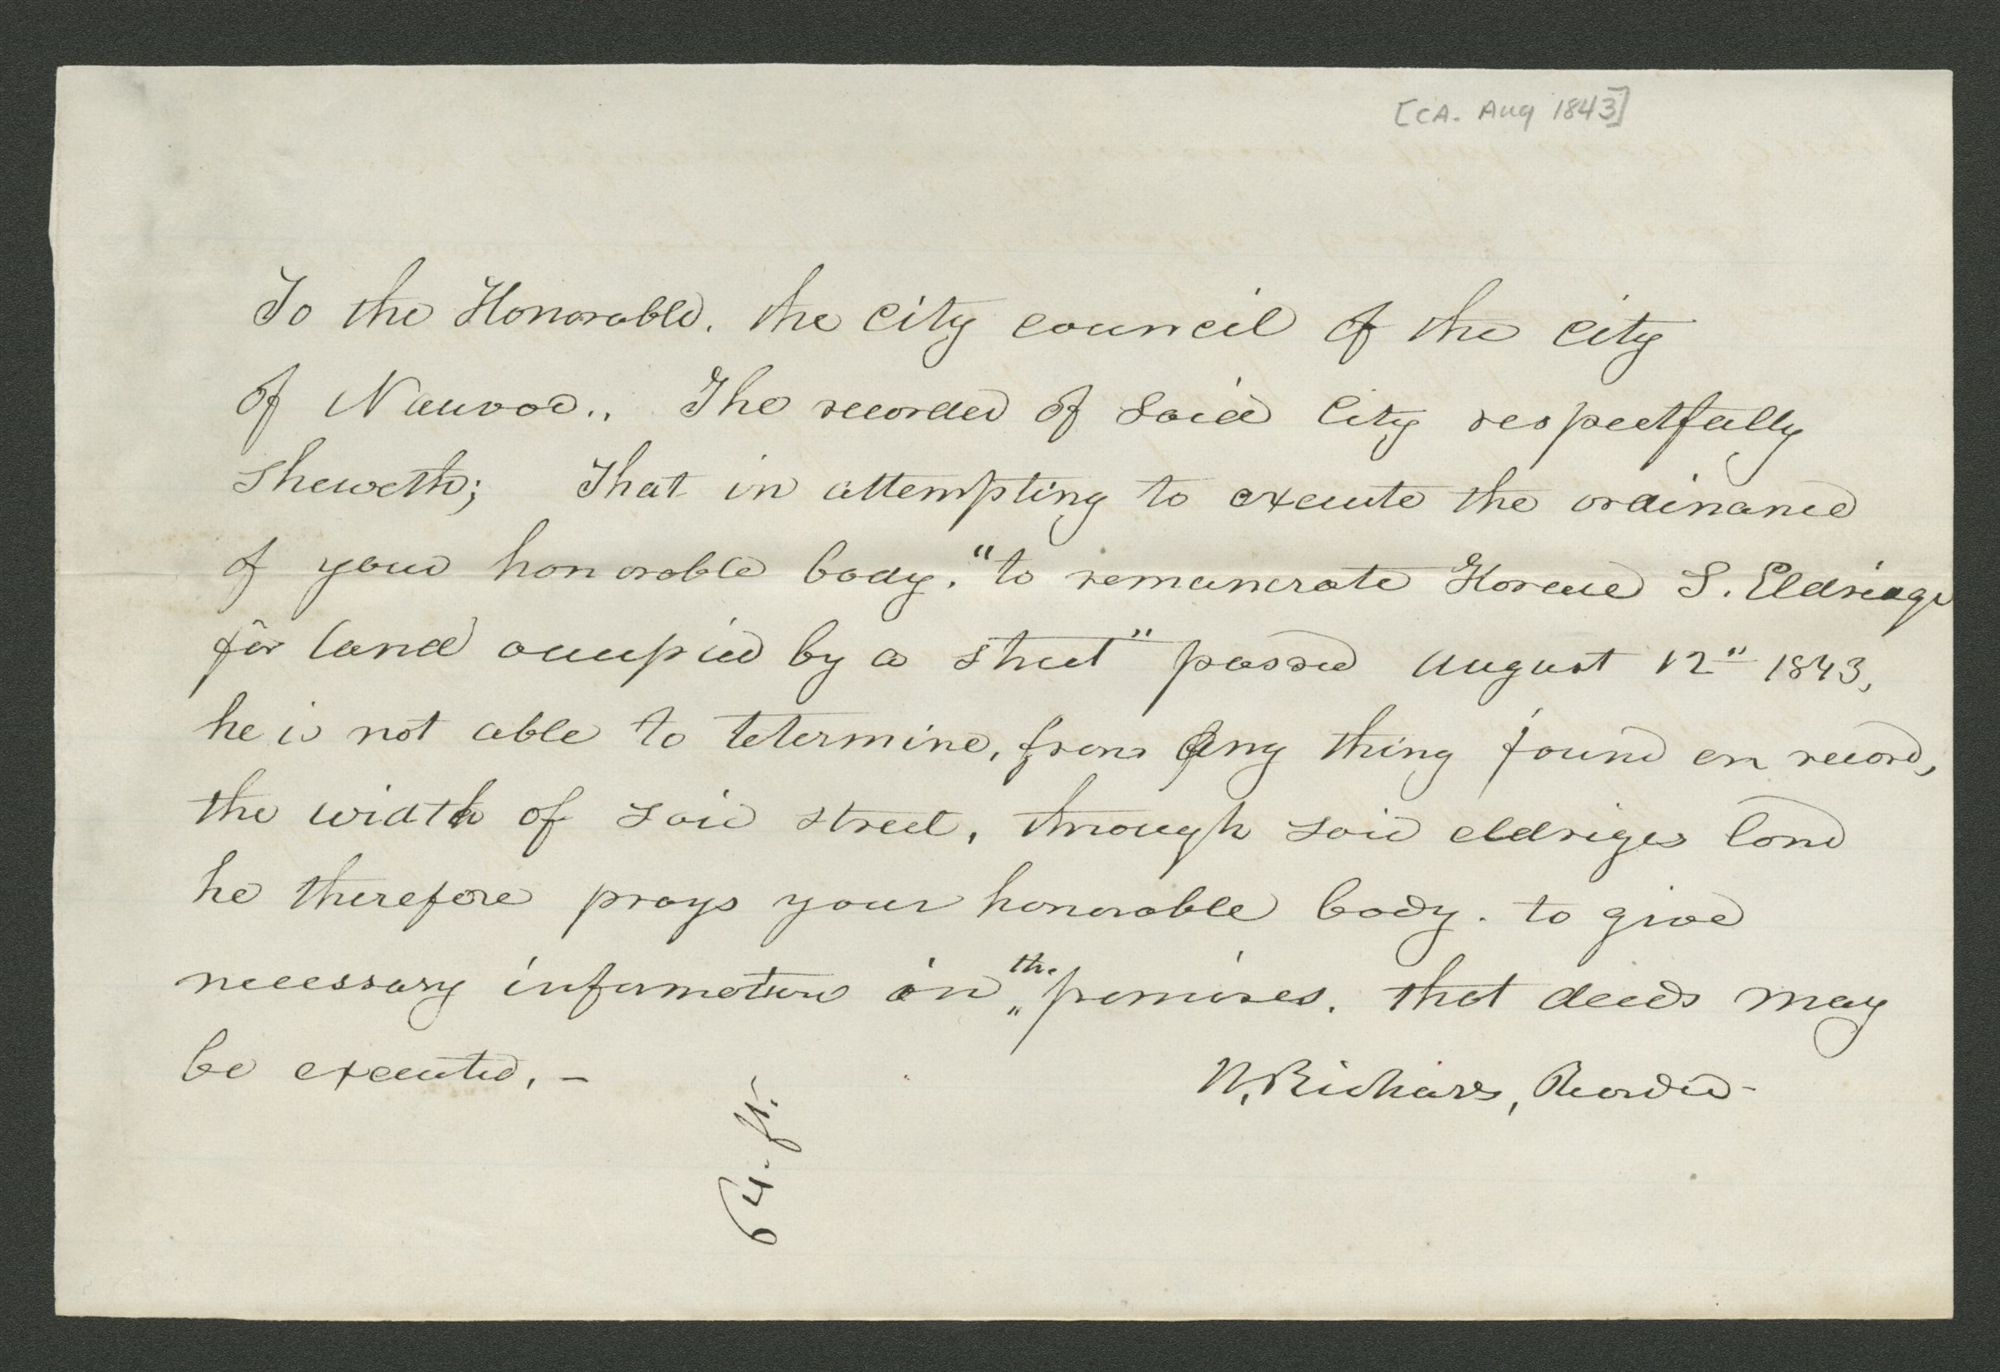 [CA. Aug 1843]
To the Honorable. the city council of the city
of Nauvoo.. The recorder of said City respectfully
sheweth; That in attempting to execute the ordinance
of your honorable body. "to remunerate Horace S. Eldridge
for land occupied by a street" passed august 12" 1843,
he is not able to determine, from any thing found on record,
the width of said street, through said eldriges land
he therefore prays your honorable body. to give
necessary information in the premises. that deeds may
be executed. –
W. Richards, Recorder –
64. ft.